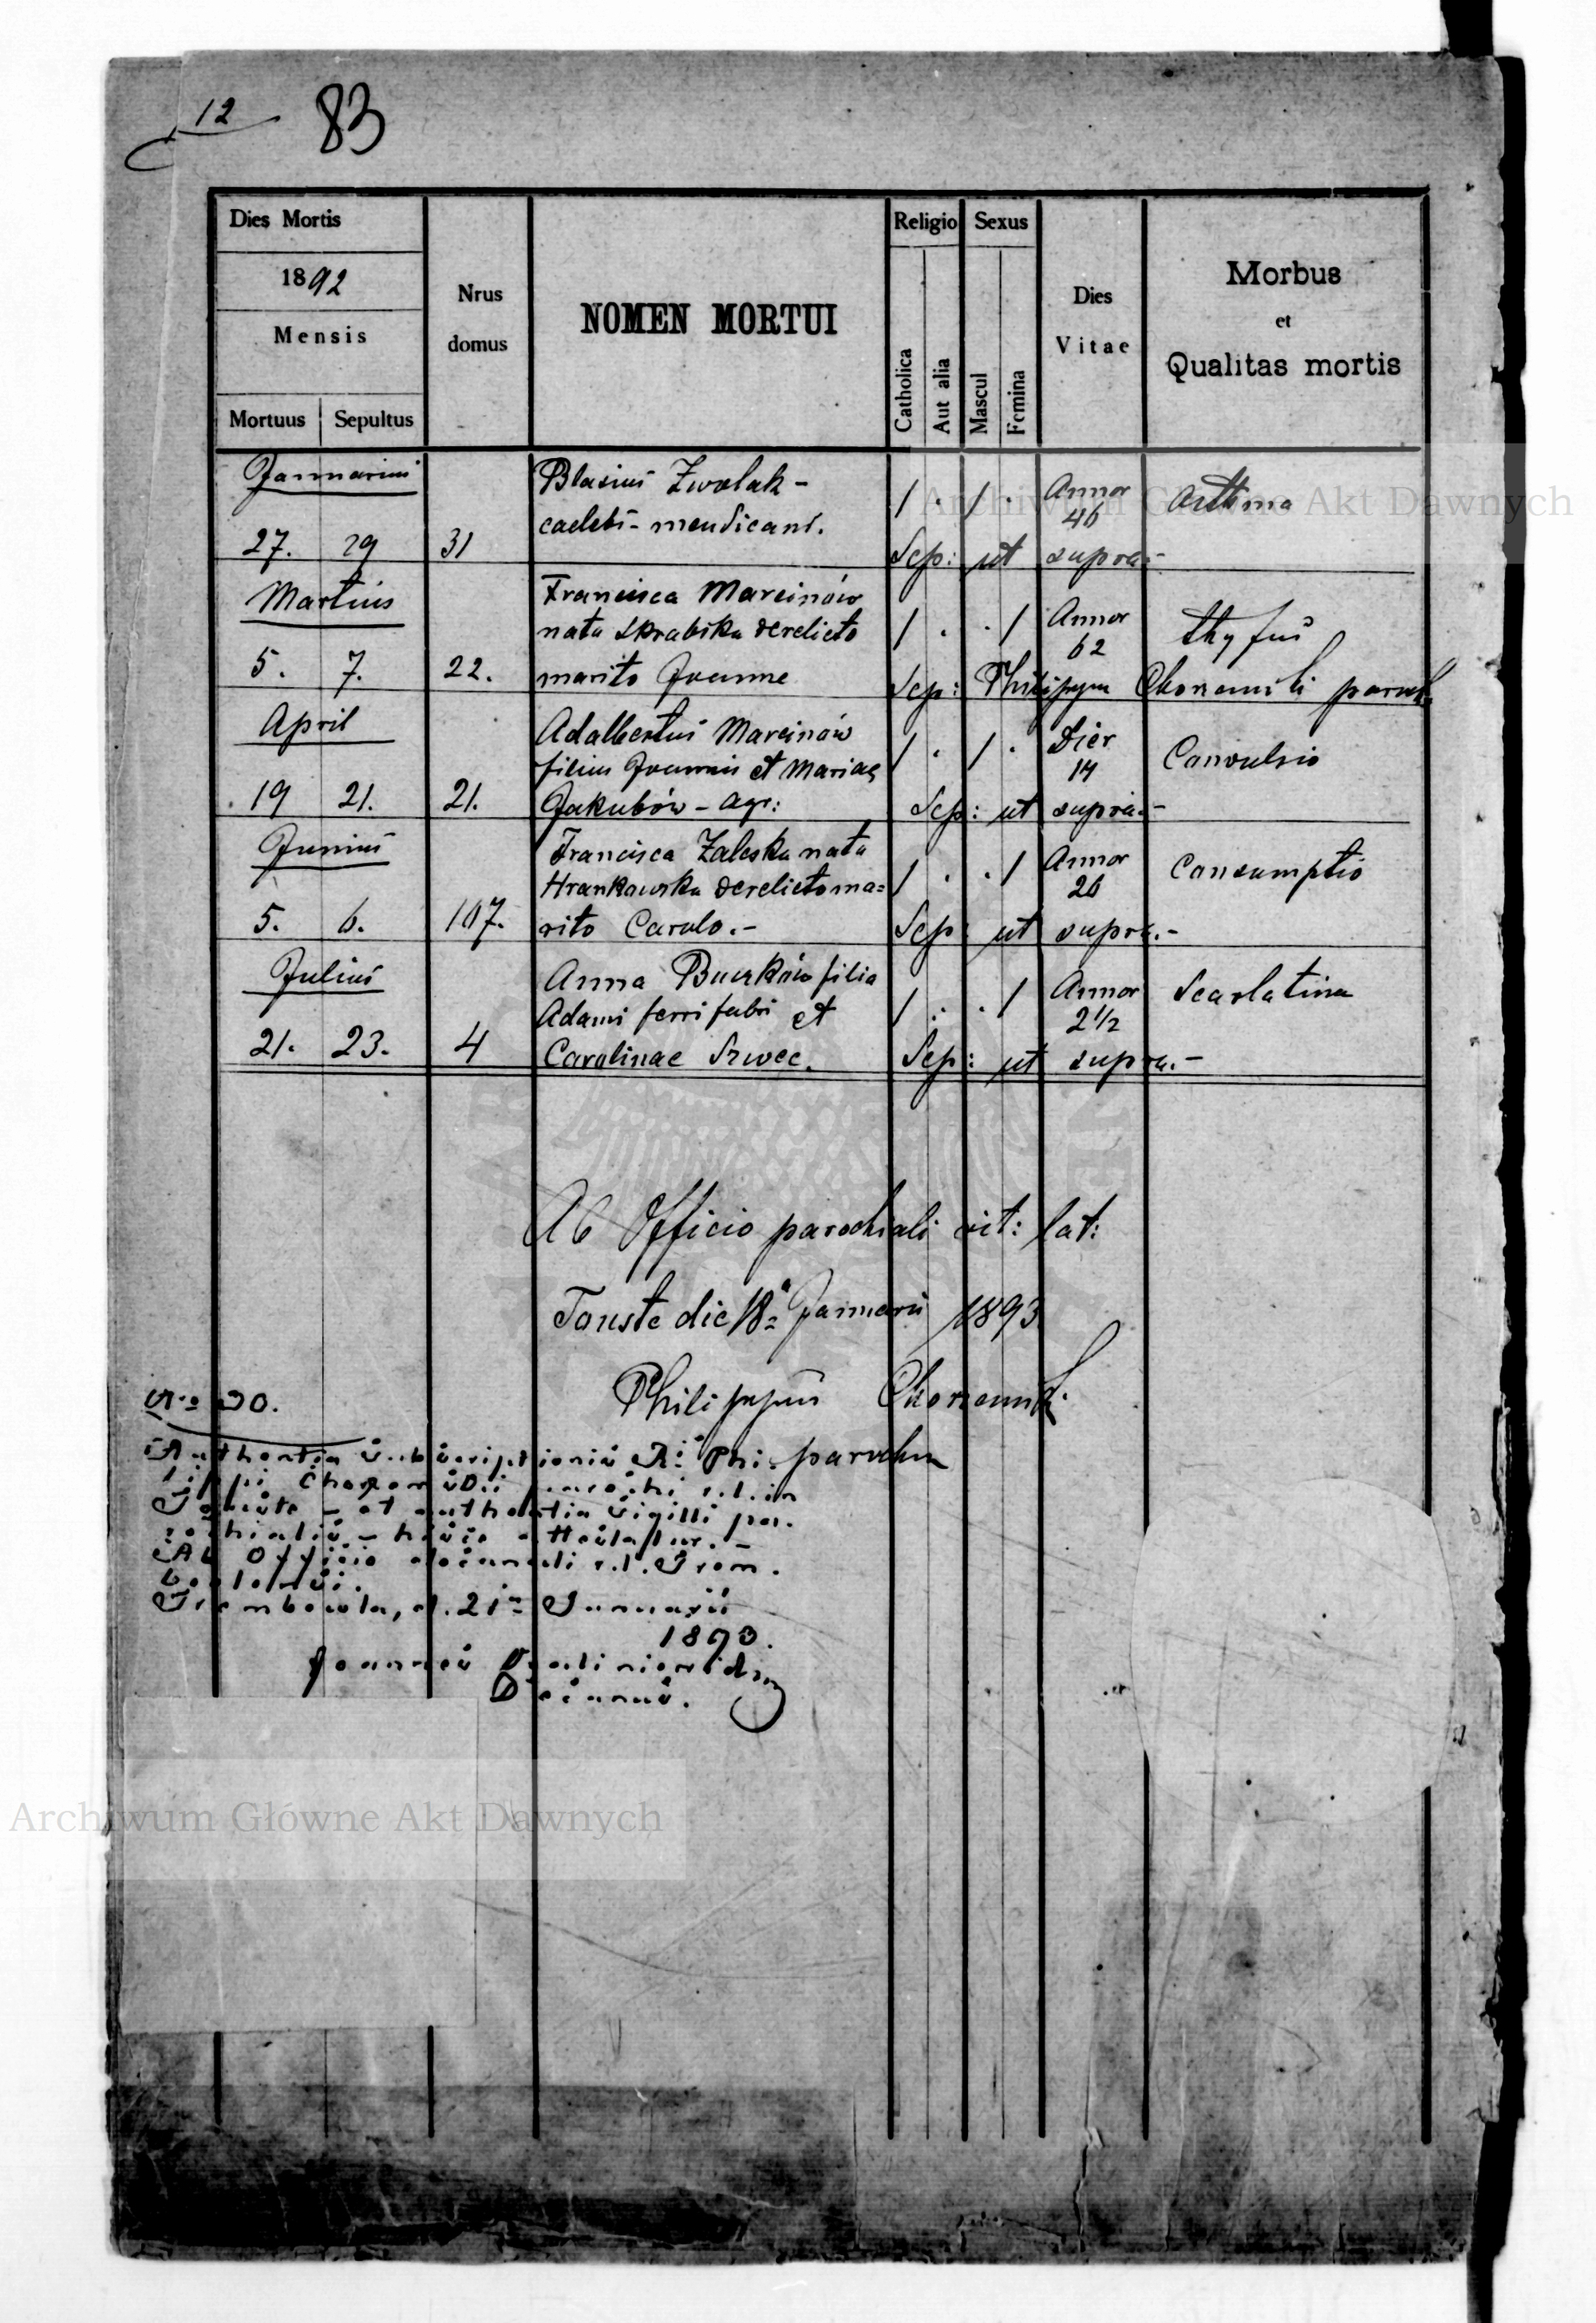 12 83
Dies Mortis
1892
Mensis
Mortuus Sepultus
Nrus
domus
NOMEN MORTUI
Religio
Catholica
Aut alia
Sexus
Mascul
Femina
Dies
Vitae
Morbus
et
Qualitas mortis
Januarius
Blasius Zwolak -
caelebs - mendicans.
27. 29 31
1 . 1 .
Annor
46
Asthma
Sep: ut supra.-
Martius
Francisca Marcinów
nata Skrabska derelicto
marito Joanne
5. 7. 22.
1 . . 1
Annor
62
thyfus
Sep: Philippus Chorzemski paroch
April
Adalbertus Marcinów
filius Joannis et Mariae
Jakubów - agr:
19 21. 21.
1 . 1 .
Dier
14
Convulsio
Sep: ut supra.-
Junius
Francisca Zaleska nata
Hrankowska derelicto ma=
rito Carolo.-
5. 6. 107.
1 . . 1
Annor
26
Consumptio
Sep: ut supra.-
Julius
Anna filia
Adami ferri fabri et
Carolinae Szwec.
21. 23. 4
1 . . 1
Annor
2 1/2
Scarlatina
Sep: ut supra.-
Ab Officio parochiali rit: lat:
Touste die 18a Januarii 1893
Philippus
parochus
No 30.
Ab Officio decanali r.l. Trem-
Trembowla, d. 21a Januarii
1893.
Joannes
Decanus.
Archiwum Główne Akt Dawnych
Archiwum Główne Akt Dawnych